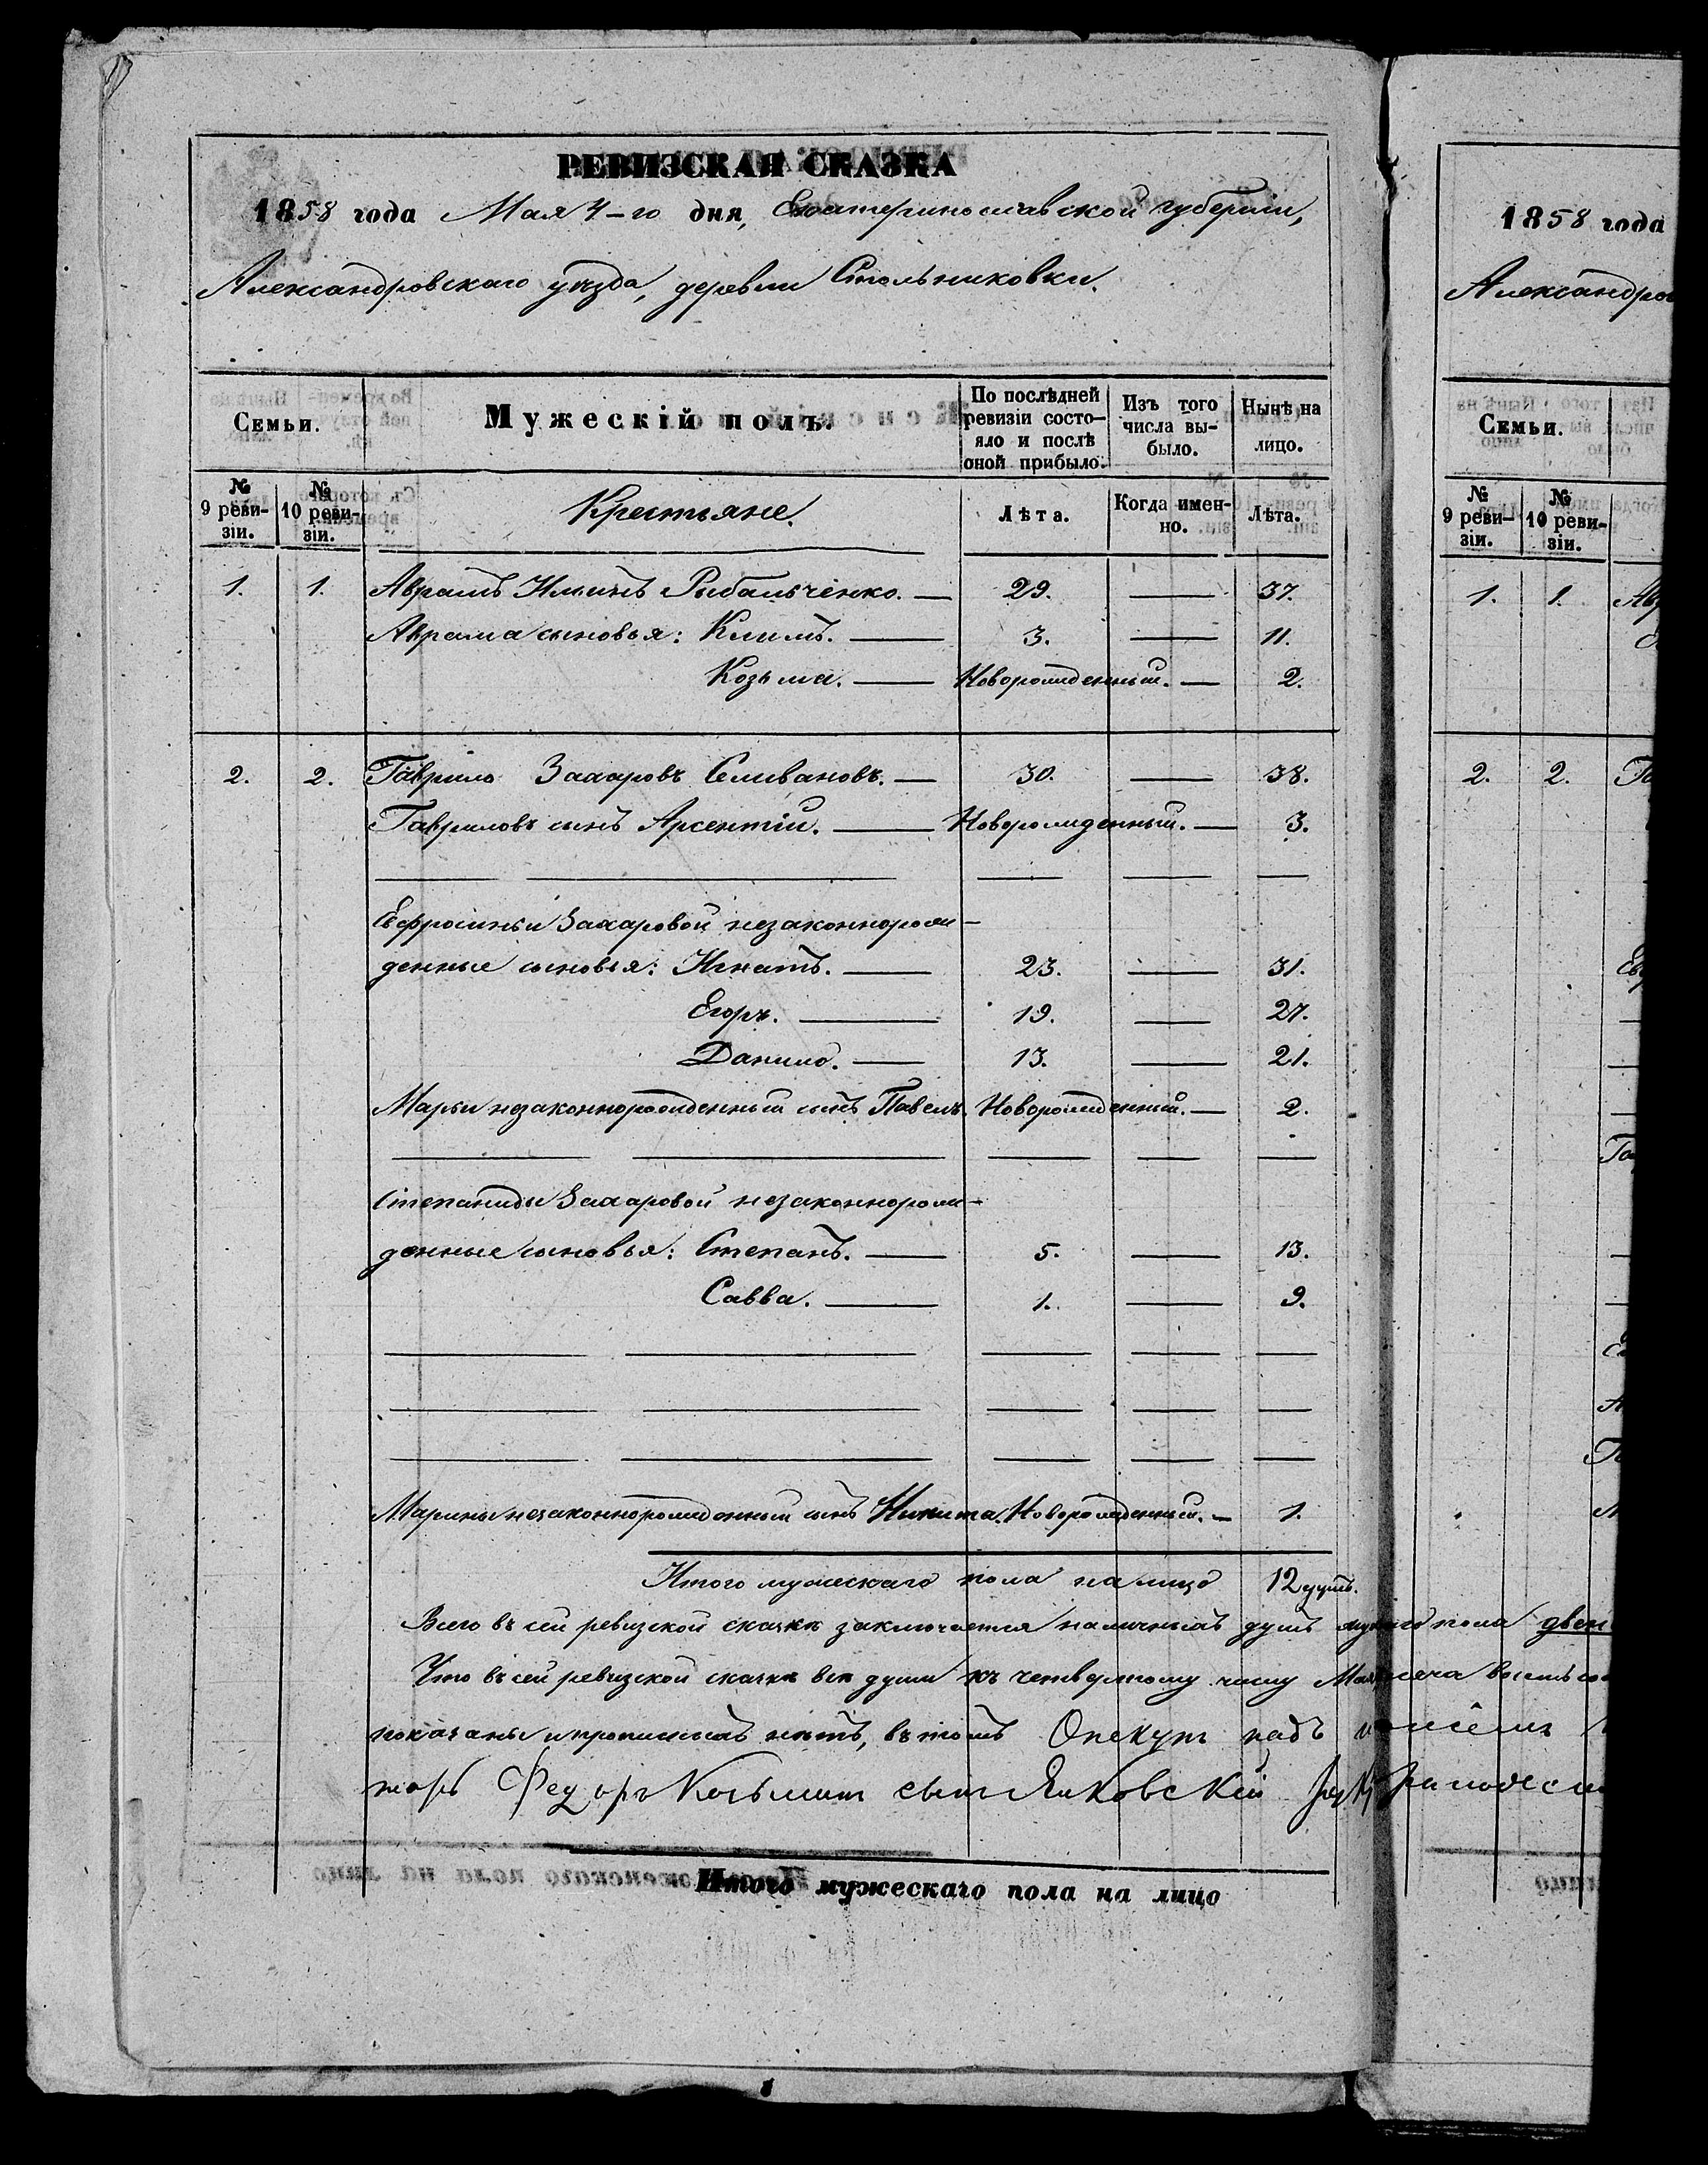 РЕВИЗСКАЯ СКАЗКА
1858 года Мая 4-го дня, Екатеринославской губернии,
Александровскаго уѣзда, деревни Стольниковки.
Семьи.
Мужескій полъ.
По послѣдней ревизіи состояло и послѣ оной прибыло.
Изъ того числа выбыло.
Нынѣ на лицо.
№ 9 ревизіи.
№ 10 ревизіи.
Крестьяне.
Лѣта.
Когда именно.
Лѣта.
1. 1. Аврамъ Ильинъ Рыбальченко. — 29. — 37.
Аврама сыновья: Климъ. — 3. — 11.
Козьма. — Новорожденный. — 2.
2. 2. Гаврило Захаровъ Селивановъ. — 30. — 38.
Гавриловъ сынъ Арсентій. — Новорожденный. — 3.
Евфросиньи Захаровой незаконнорож-
денные сыновья: Игнатъ. — 23. — 31.
Егоръ. — 19. — 27.
Данило. — 13. — 21.
Марьи незаконнорожденный сынъ Павелъ. Новорожденный. — 2.
Степаниды Захаровой незаконнорож-
денные сыновья: Степанъ. — 5. — 13.
Савва. — 1. — 9.
Марины незаконнорожденный сынъ Никита. Новорожденный. — 1.
Итого мужескаго пола налицо 12 душъ.
Всего въ сей ревизской сказкѣ заключается наличныхъ душъ пола двен
Что въ сей ревизской сказкѣ всѣ души къ четвертому числу Мая
показаны и прописныхъ нѣтъ, въ томъ Опекунъ надъ
Федоръ Козьминъ сынъ Янковскій
Итого мужескаго пола на лицо
1858 года
Александров
Семьи.
№ 9 ревизіи.
№ 10 ревизіи.
1. 1.
2. 2.